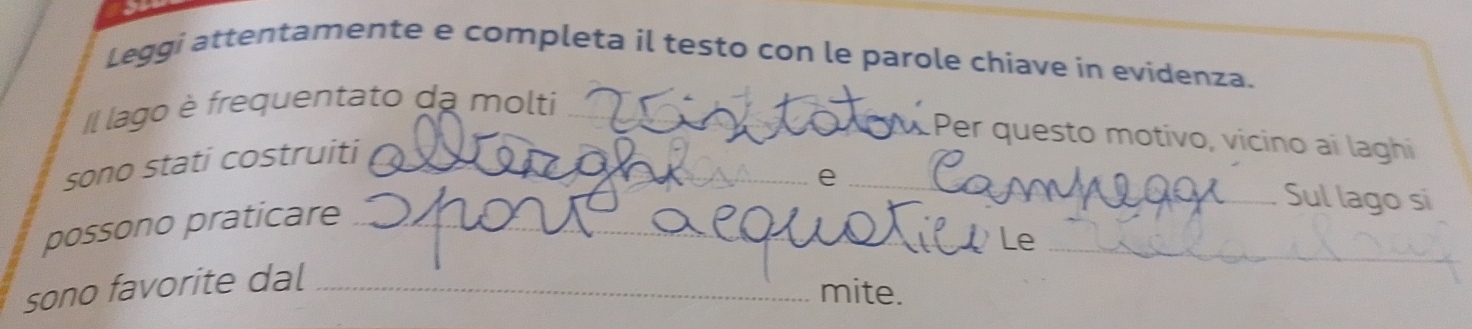 Leggi attentamente e completa il testo con le parole chiave in evidenza.
Il lago è frequentato da molti visitatori Per questo motivo, vicino ai laghi
sono stati costruiti alberghi e Campeggi Sul lago si
possono praticare sport acquatici Le
sono favorite dal mite.